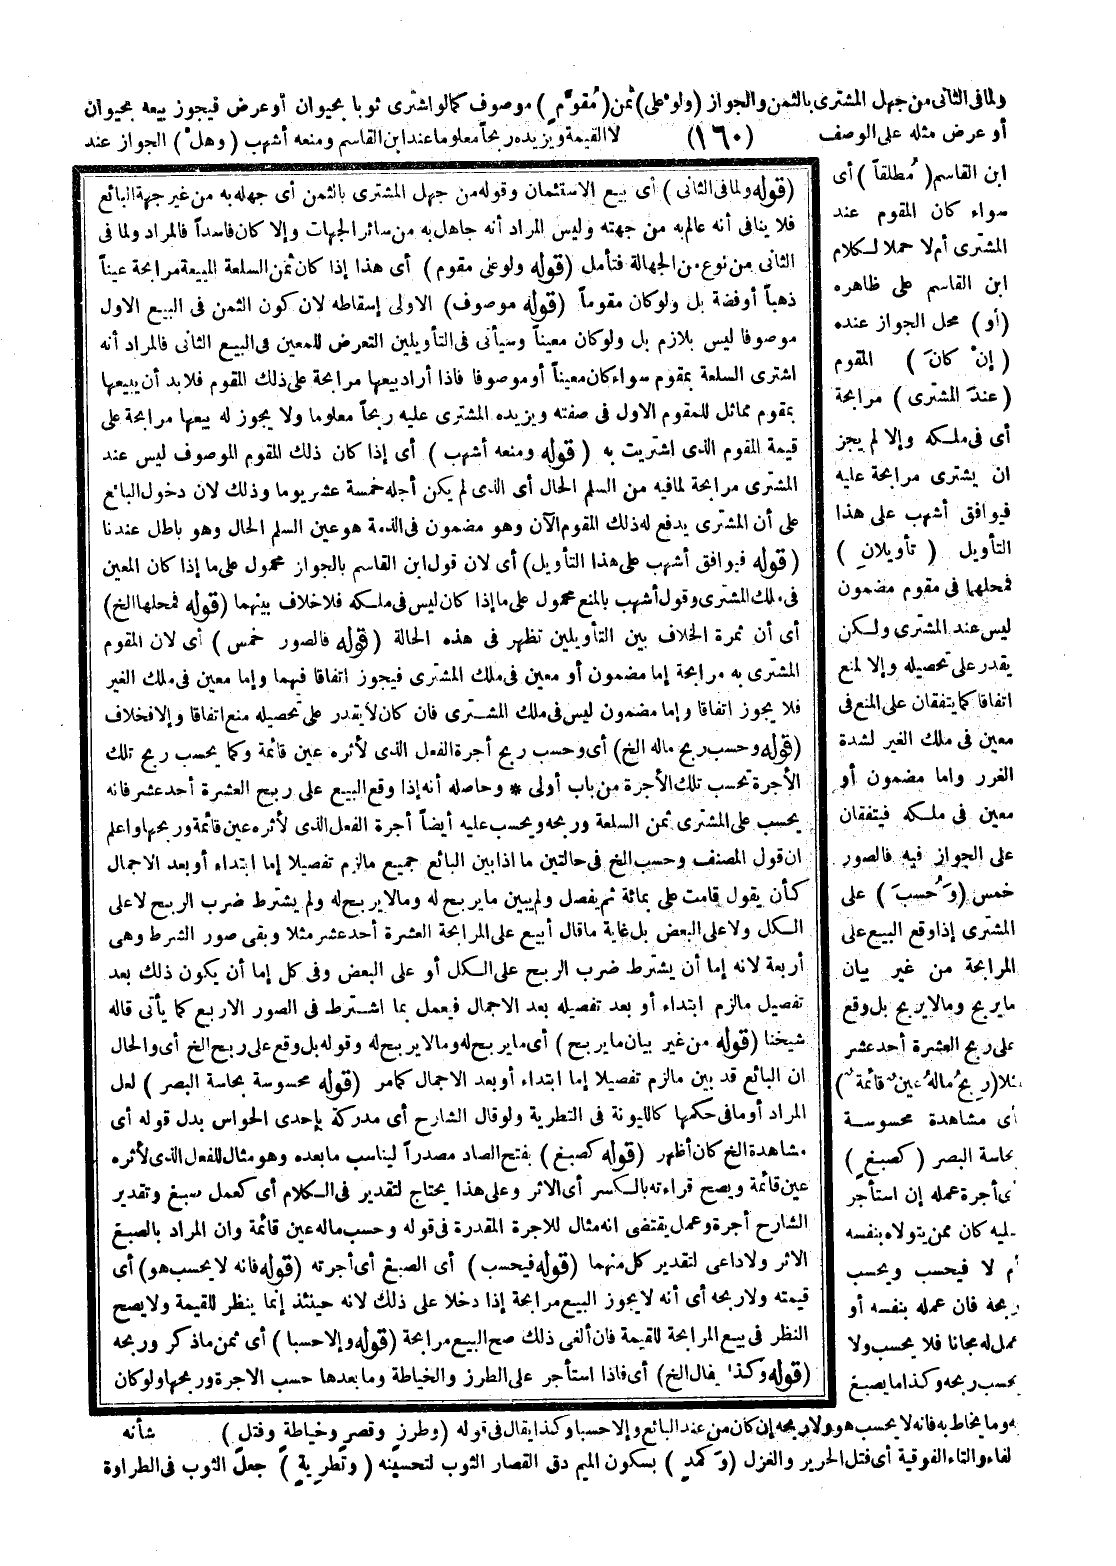 ولما فى الثانى من جهل المشترى بالثمن والجواز (ولو على) ثمن (مُقوَّم) موصوف كما لو اشترى ثوبا بحيوان أو عرض فيجوز بيعه بحيوان
أو عرض مثله على الوصف (١٦٠) لا القيمة ويزيده ربحاً معلوما عند ابن القاسم ومنعه أشهب (وهل) الجواز عند
ابن القاسم (مُطلقاً) أى
سواء كان المقوم عند
المشترى أم لا حملا لكلام
ابن القاسم على ظاهره
(أو) محل الجواز عنده
(إنْ كانَ) المقوم
(عندَ المشترى) مرابحة
أى فى ملكه وإلا لم يجز
ان يشترى مرابحة عليه
فيوافق أشهب على هذا
التأويل (تأويلانِ)
فمحلها فى مقوم مضمون
ليس عند المشترى ولكن
يقدر على تحصيله وإلا لمنع
اتفاقا كما يتفقان على المنع فى
معين فى ملك الغير لشدة
الغرر واما مضمون أو
معين فى ملكه فيتفقان
على الجواز فيه فالصور
خمس (وَحُسبَ) على
المشترى إذا وقع البيع على
المرابحة من غير بيان
ما يربح وما لا يربح بل وقع
على ربح العشرة أحد عشر
مثلا (ربحُ مالهُ عينٌ قائمةٌ)
أى مشاهدة محسوسة
بحاسة البصر (كصبغٍ)
أى أجرة عمله إن استأجر
عليه كان ممن يتولاه بنفسه
أم لا فيحسب ويحسب
ربحه فان عمله بنفسه أو
عمل له مجانا فلا يحسب ولا
يحسب ربحه وكذا ما يصبغ
به وما يخاط به فانه لا يحسب هو ولا ربحه إن كان من عند البائع وإلا حسبا وكذا يقال فى قوله (وطرزٍ وقصرٍ وخياطةٍ وفتلٍ) شأنه
لفاء والتاء الفوقية أى فتل الحرير والغزل (وَكمدٍ) بسكون الميم دق القصار الثوب لتحسينه (وتطريةٍ) جعل الثوب فى الطراوة
(قوله ولما فى الثانى) أى بيع الاستئمان وقوله من جهل المشترى بالثمن أى جهله به من غير جهة البائع
فلا ينافى أنه عالم به من جهته وليس المراد أنه جاهل به من سائر الجهات وإلا كان فاسداً فالمراد ولما فى
الثانى من نوع من الجهالة فتأمل (قوله ولو على مقوم) أى هذا إذا كان ثمن السلعة المبيعة مرابحة عيناً
ذهباً أو فضة بل ولو كان مقوماً (قوله موصوف) الاولى إسقاطه لان كون الثمن فى البيع الاول
موصوفا ليس بلازم بل ولو كان معيناً وسيأتى فى التأويلين التعرض للمعين فى البيع الثانى فالمراد أنه
اشترى السلعة بمقوم سواء كان معيناً أو موصوفا فاذا أراد بيعها مرابحة على ذلك المقوم فلا بد أن يبيعها
بمقوم مماثل للمقوم الاول فى صفته ويزيده المشترى عليه ربحاً معلوما ولا يجوز له بيعها مرابحة على
قيمة المقوم الذى اشتريت به (قوله ومنعه أشهب) أى إذا كان ذلك المقوم الموصوف ليس عند
المشترى مرابحة لما فيه من السلم الحال أى الذى لم يكن أجله خمسة عشر يوما وذلك لان دخول البائع
على أن المشترى يدفع له ذلك المقوم الآن وهو مضمون فى الذمة هو عين السلم الحال وهو باطل عندنا
(قوله فيوافق أشهب على هذا التأويل) أى لان قول ابن القاسم بالجواز محمول على ما إذا كان المعين
فى ملك المشترى وقول أشهب بالمنع محمول على ما إذا كان ليس فى ملكه فلا خلاف بينهما (قوله فمحلها الخ)
أى أن ثمرة الخلاف بين التأويلين تظهر فى هذه الحالة (قوله فالصور خمس) أى لان المقوم
المشترى به مرابحة إما مضمون أو معين فى ملك المشترى فيجوز اتفاقا فيهما وإما معين فى ملك الغير
فلا يجوز اتفاقا وإما مضمون ليس فى ملك المشترى فان كان لا يقدر على تحصيله منع اتفاقا وإلا فخلاف
(قوله وحسب ربح ماله الخ) أى وحسب ربح أجرة الفعل الذى لأثره عين قائمة وكما يحسب ربح تلك
الأجرة تحسب تلك الأجرة من باب أولى * وحاصله أنه إذا وقع البيع على ربح العشرة أحد عشر فانه
يحسب على المشترى ثمن السلعة وربحه ويحسب عليه أيضاً أجرة الفعل الذى لأثره عين قائمة وربحها واعلم
ان قول المصنف وحسب الخ فى حالتين ما اذا بين البائع جميع ما لزم تفصيلا إما ابتداء أو بعد الاجمال
كأن يقول قامت على بمائة ثم يفصل ولم يبين ما يربح له وما لا يربح له ولم يشترط ضرب الربح لا على
الكل ولا على البعض بل غاية ما قال أبيع على المرابحة العشرة أحد عشر مثلا وبقى صور الشرط وهى
أربعة لانه إما أن يشترط ضرب الربح على الكل أو على البعض وفى كل إما أن يكون ذلك بعد
تفصيل ما لزم ابتداء أو بعد تفصيله بعد الاجمال فيعمل بما اشترط فى الصور الاربع كما يأتى قاله
شيخنا (قوله من غير بيان ما يربح) أى ما يربح له وما لا يربح له وقوله بل وقع على ربح الخ أى والحال
ان البائع قد بين ما لزم تفصيلا إما ابتداء أو بعد الاجمال كما مر (قوله محسوسة بحاسة البصر) لعل
المراد أو ما فى حكمها كالليونة فى التطرية ولو قال الشارح أى مدركة بإحدى الحواس بدل قوله أى
مشاهدة الخ كان أظهر (قوله كصبغ) بفتح الصاد مصدراً ليناسب ما بعده وهو مثال للفعل الذى لأثره
عين قائمة ويصح قراءته بالكسر أى الاثر وعلى هذا يحتاج لتقدير فى الكلام أى كعمل صبغ وتقدير
الشارح أجرة وعمل يقتضى انه مثال للاجرة المقدرة فى قوله وحسب ماله عين قائمة وان المراد بالصبغ
الاثر ولا داعى لتقدير كل منهما (قوله فيحسب) أى الصبغ أى أجرته (قوله فانه لا يحسب هو) أى
قيمته ولا ربحه أى أنه لا يجوز البيع مرابحة إذا دخلا على ذلك لانه حينئذ إنما ينظر للقيمة ولا يصح
النظر فى بيع المرابحة للقيمة فان ألغى ذلك صح البيع مرابحة (قوله وإلا حسبا) أى ثمن ماذكر وربحه
(قوله وكذا يقال الخ) أى فاذا استأجر على الطرز والخياطة وما بعدها حسب الاجرة وربحها ولو كان